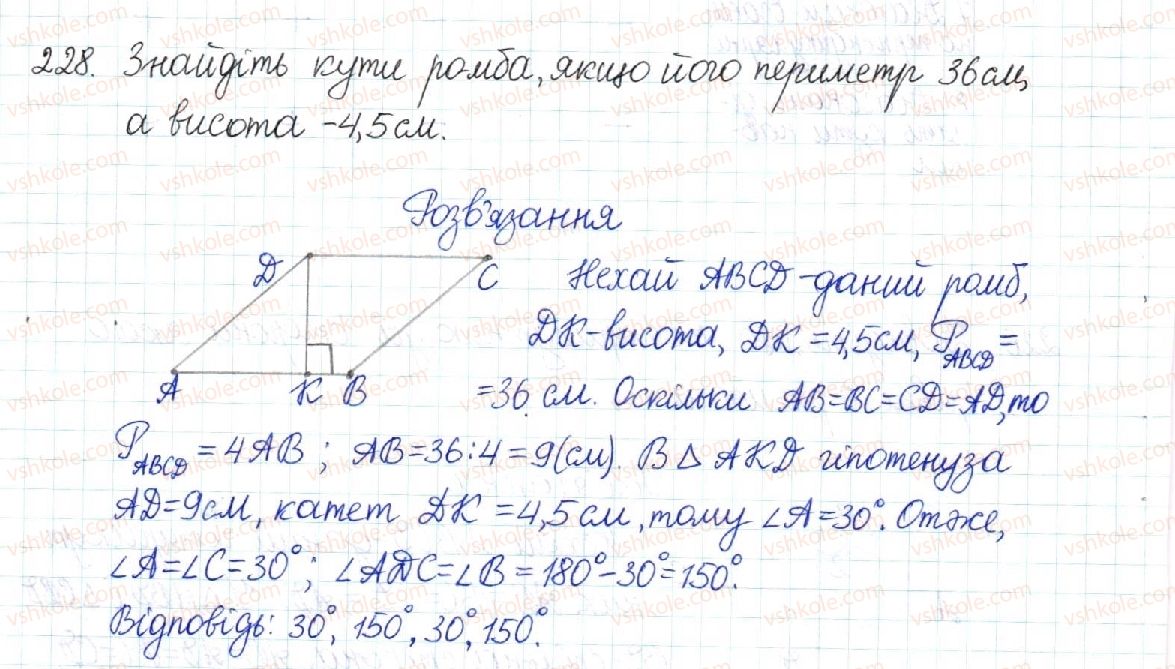 228. Знайдіть кути ромба, якщо його периметр 36 см,
а висота – 4,5 см.
Розв'язання
D C Нехай ABCD – даний ромб,
DK – висота, DK = 4,5 см, P_ABCD =
A K B = 36 см. Оскільки AB = BC = CD = AD, то
P_ABCD = 4AB; AB = 36 : 4 = 9 (см). В △ AKD гіпотенуза
AD = 9 см, катет DK = 4,5 см, тому ∠A = 30°. Отже,
∠A = ∠C = 30°; ∠ADC = ∠B = 180° – 30° = 150°.
Відповідь: 30°, 150°, 30°, 150°.
vshkole.com